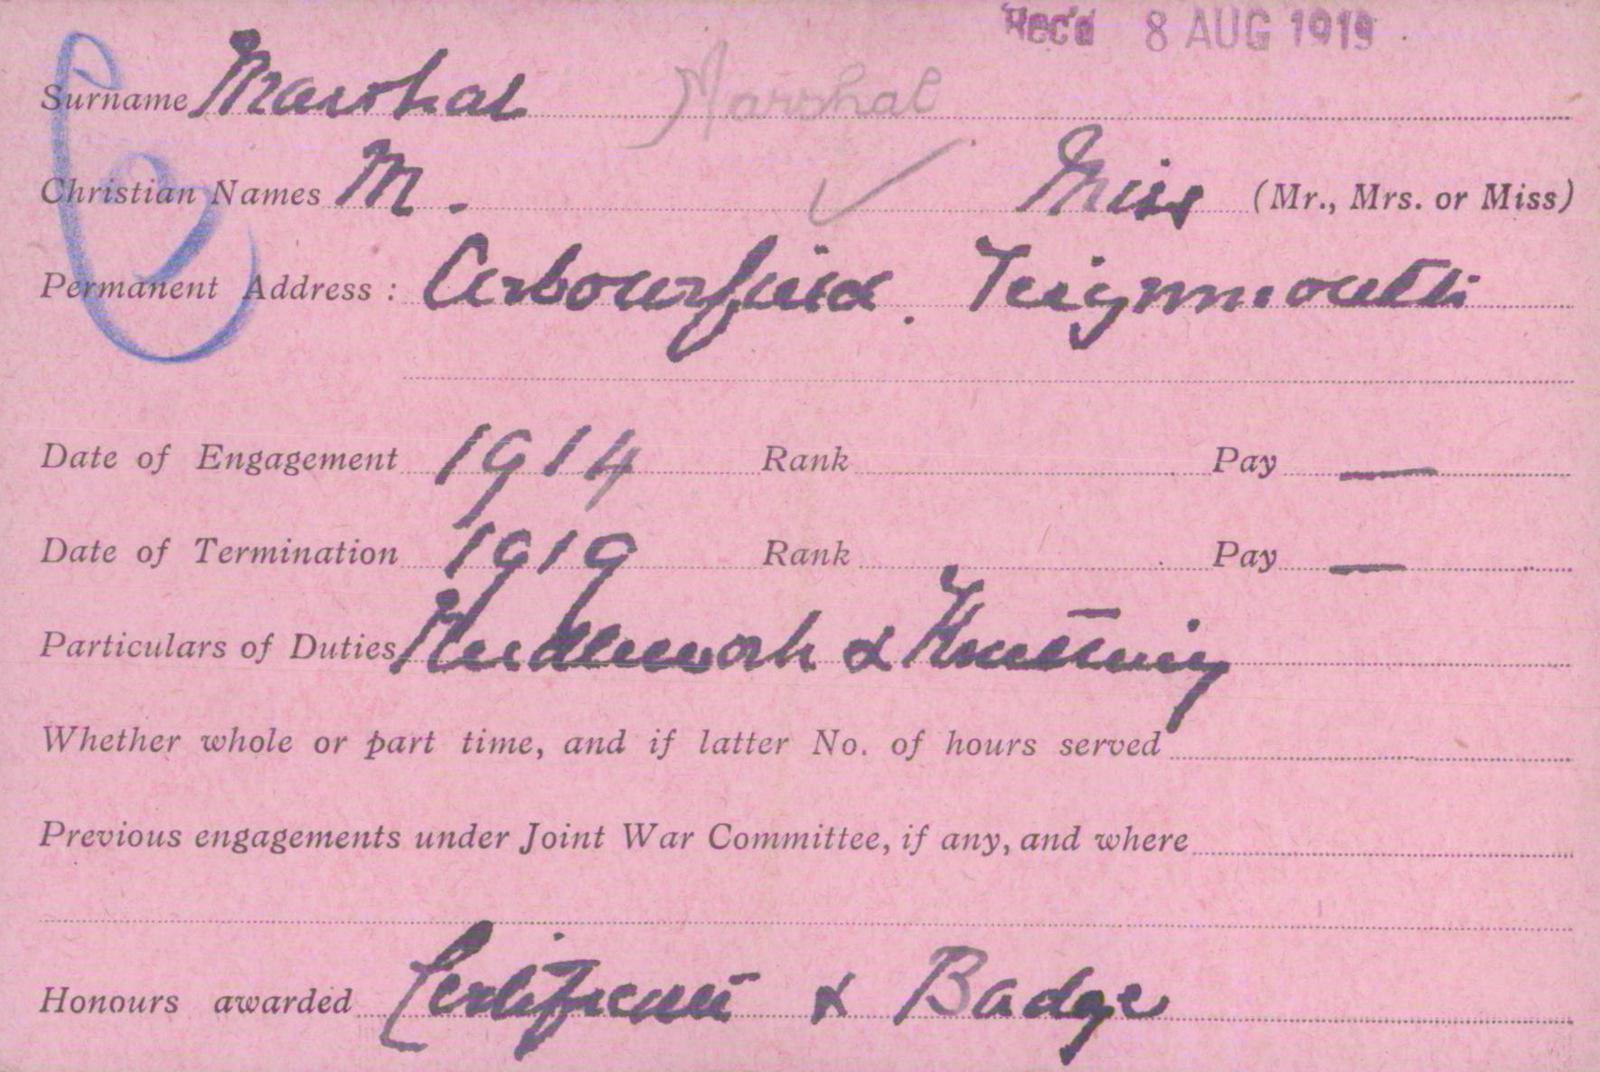 Rec'd 8 AUG 1919
Surname Marshal Marshal
Christian Names M. Miss (Mr., Mrs. or Miss)
Permanent Address: Arbourfield. Teignmouth
Date of Engagement 1914 Rank Pay —
Date of Termination 1919 Rank Pay —
Particulars of Duties Needlework & Knitting
Whether whole or part time, and if latter No. of hours served
Previous engagements under Joint War Committee, if any, and where
Honours awarded Certificate & Badge